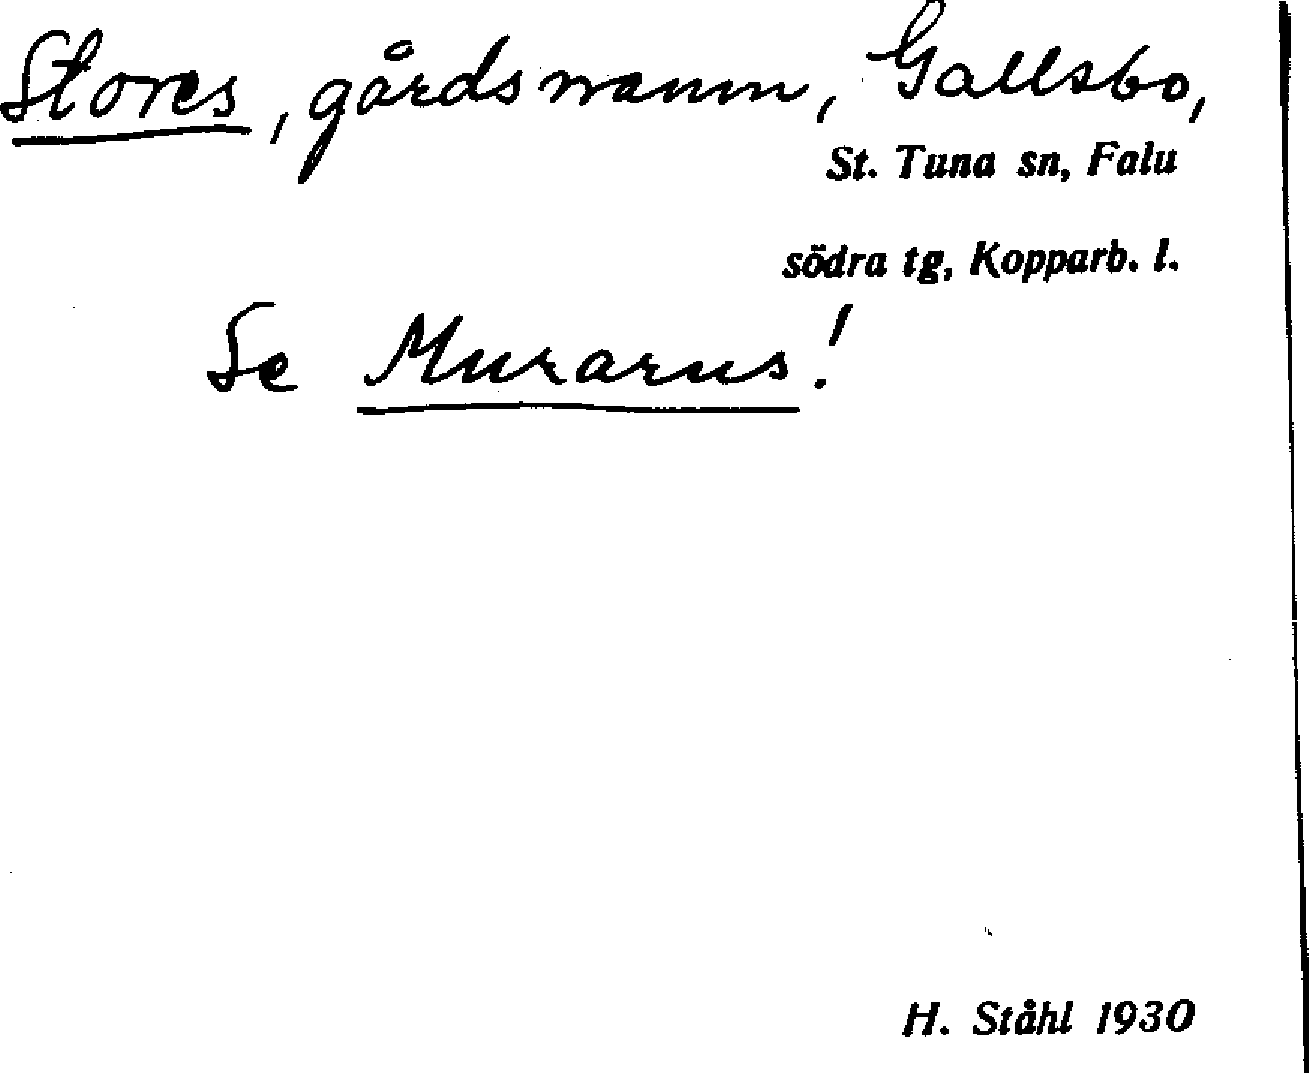 Stores, gårdsnamn, Gallsbo,
St. Tuna sn, Falu
södra tg, Kopparb. l.
Se Murarns!
H. Ståhl 1930